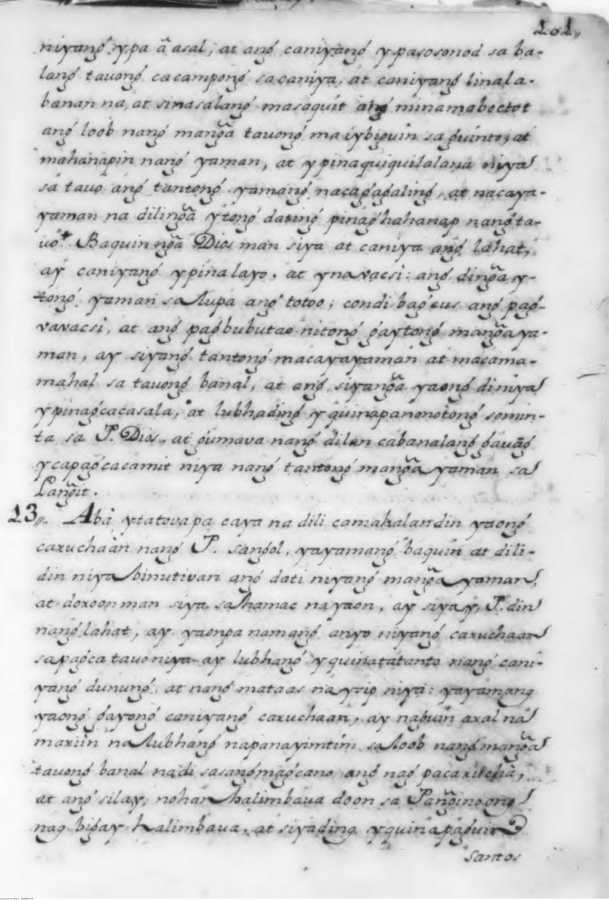 202,
niyang ypa ã asal; at ang caniyang ypasosonod sa ba-
lang tauong cacampong sa caniya, at caniyang linala-
banan na, at sinasalang masaquit ang minamaboctot
ang loob nang manga tauong ma iybiguin sa guinto; at
mahanapin nang yaman, at ypinaquiquilalana niya
sa tauo ang tantong yamang nacagagaling, at nacaya-
yaman na dilinga ytong dating pinaghahanap nang ta-
uo. Baquin nga Dios man siya at caniya ang lahat,
ay caniyang ypinalayo, at ynavacsi: ang dinga y-
tong yaman sa lupa ang totoo; condi bagcus ang pag-
vavacsi, at ang pagbubutao nitong gaytong manga ya-
man, ay siyang tantong macayayaman at macama-
mahal sa tauong banal, at ang siyanga yaong di niya
ypinagcacasala, at lubhading yquinapanonotong somin-
ta sa P. Dios, at gumava nang dilan cabanalang gauãg
ycapagcacamit niya nang tantong manga yaman sa
Langit.
13,, Aba ytatovapa caya na dili camahalandin yaong
caruchaan nang P. sangol, yayamang baquin at dili-
din niya binutivan ang dati niyang manga yaman,
at doroon man siya sa hamac na yaon, ay siya y, P. din
nang lahat, ay yaonpa namang anyo niyang caruchaan
sa pagca tauo niya ay lubhang yquinatatanto nang cani-
yang dunung, at nang mataas na ysip niya: yayamang
yaong gayong caniyang caruchaan, ay naguin aral na
mariin na lubhang napanayimtim sa loob nang manga
tauong banal na di sasangmagcano ang nag pacarilcha,
at ang silay, nohan halimbaua doon sa Panginoong
nag bigay halimbaua, at siyading yquinapaguin
santos